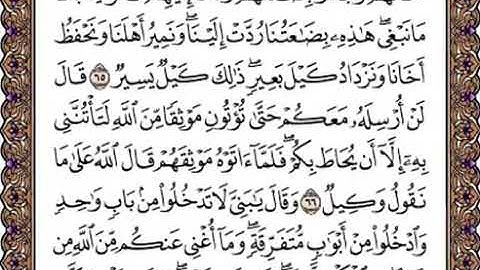 مَا نَبْغِى ۖ هَـٰذِهِۦ بِضَـٰعَتُنَا رُدَّتْ إِلَيْنَا ۖ وَنَمِيرُ أَهْلَنَا وَنَحْفَظُ
أَخَانَا وَنَزْدَادُ كَيْلَ بَعِيرٍ ۖ ذَٰلِكَ كَيْلٌ يَسِيرٌ ٦٥ قَالَ
لَنْ أُرْسِلَهُۥ مَعَكُمْ حَتَّىٰ تُؤْتُونِ مَوْثِقًا مِّنَ ٱللَّهِ لَتَأْتُنَّنِى
بِهِۦٓ إِلَّآ أَن يُحَاطَ بِكُمْ ۖ فَلَمَّآ ءَاتَوْهُ مَوْثِقَهُمْ قَالَ ٱللَّهُ عَلَىٰ مَا
نَقُولُ وَكِيلٌ ٦٦ وَقَالَ يَـٰبَنِىَّ لَا تَدْخُلُوا۟ مِنۢ بَابٍ وَٰحِدٍ
وَٱدْخُلُوا۟ مِنْ أَبْوَٰبٍ مُّتَفَرِّقَةٍ ۖ وَمَآ أُغْنِى عَنكُم مِّنَ ٱللَّهِ مِن